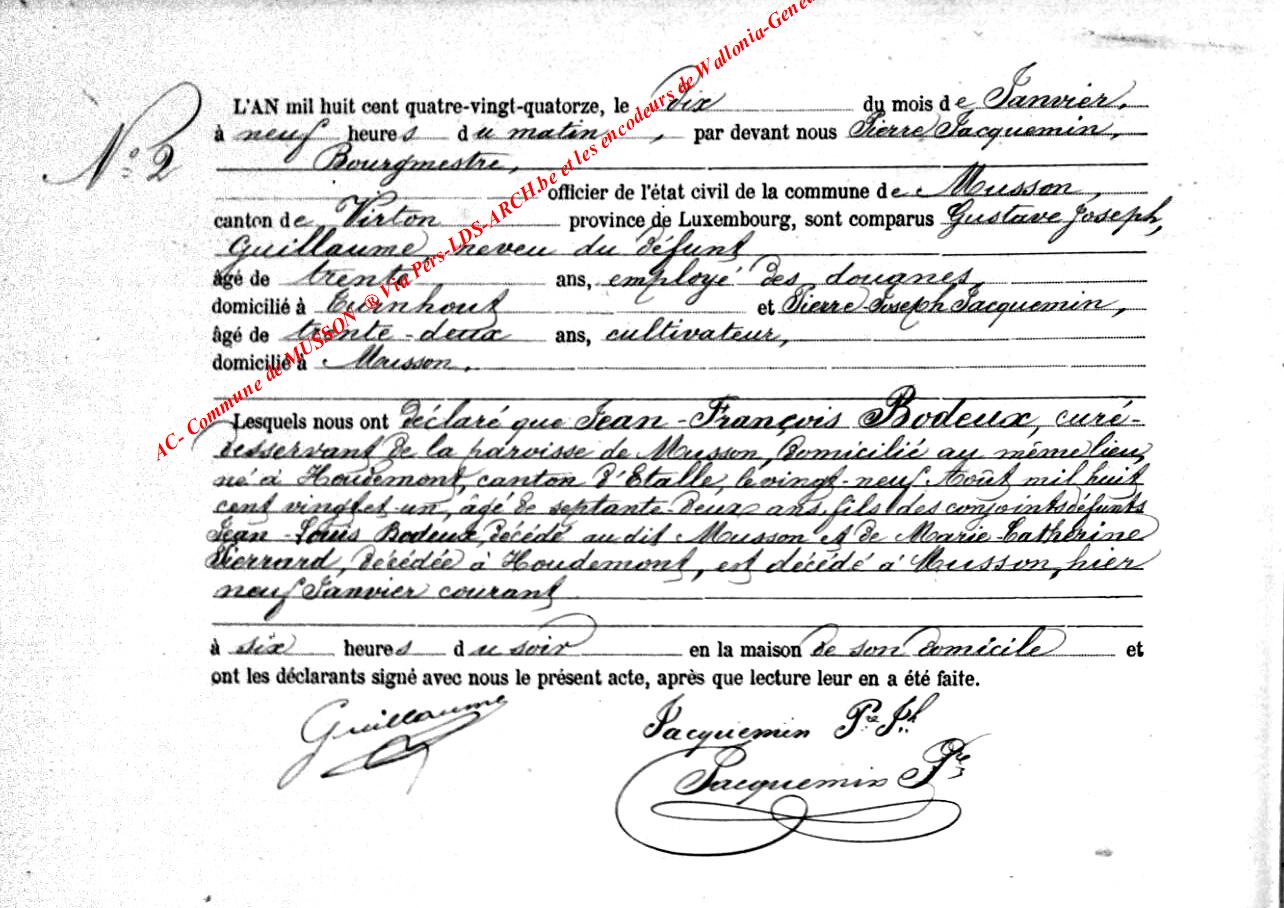 N° 2
L'AN mil huit cent quatre-vingt-quatorze, le dix du mois de Janvier,
à neuf heures du matin, par devant nous Pierre Jacquemin,
Bourgmestre,
officier de l'état civil de la commune de Musson,
canton de Virton province de Luxembourg, sont comparus Gustave Joseph,
Guillaume, neveu du défunt
âgé de trente ans, employé des douanes,
domicilié à Turnhout et Pierre-Joseph Jacquemin,
âgé de trente-deux ans, cultivateur,
domicilié à Musson.
Lesquels nous ont déclaré que Jean-François Bodeux, curé-
desservant de la paroisse de Musson, domicilié au même lieu
né à Houdemont, canton d'Etalle, le vingt-neuf Août mil huit
cent vingt et un, âgé de septante-deux ans, fils des conjoints défunts
Jean-Louis Bodeux, décédé audit Musson et de Marie-Catherine
Pierrard, décédée à Houdemont, est décédé à Musson, hier
neuf Janvier courant
à six heures du soir en la maison de son domicile et
ont les déclarants signé avec nous le présent acte, après que lecture leur en a été faite.
Guillaume
Jacquemin Pre Jh
Jacquemin Pre
AC- Commune de MUSSON ® Via Pers-LDS-ARCH.be et les encodeurs de Wallonia-Genea